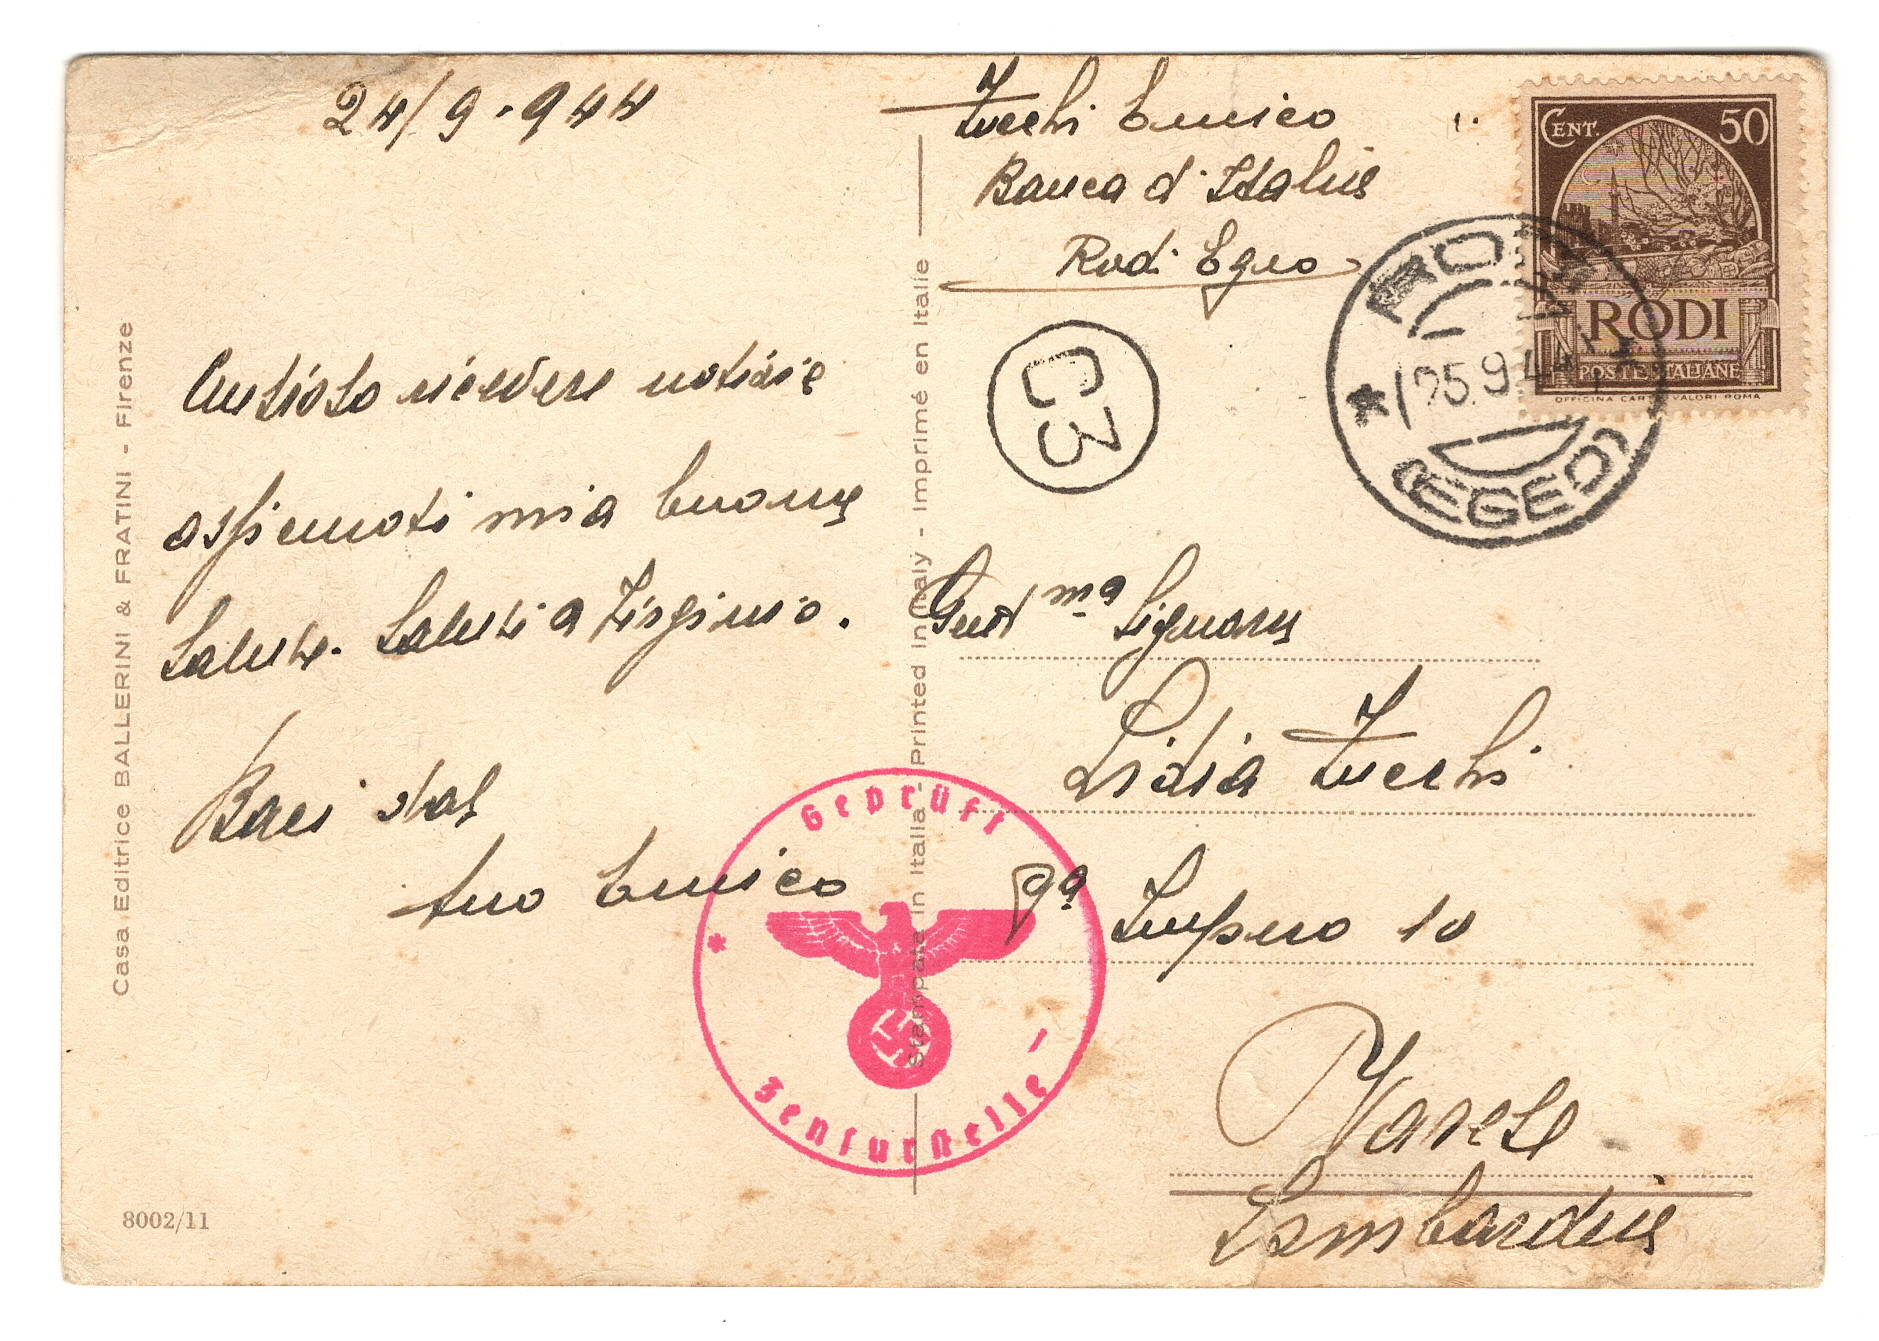 24/9-944
Zucchi Enrico
Banca d'Italia
Rodi Egeo
CENT. 50
RODI
POSTE ITALIANE
OFFICINA CARTE VALORI ROMA
RODI
25.9.44
(EGEO)
C3
ricevere notizie
mia buona
Salute. Saluti a
Baci dal
tuo Enrico
Gent ma Signora
Lidia Zucchi
Impero 10
Varese
Lombardia
Geprüft
Zensurstelle
Casa Editrice BALLERINI & FRATINI - Firenze
Stampate in Italia - Printed in Italy - Imprimé en Italie
8002/11